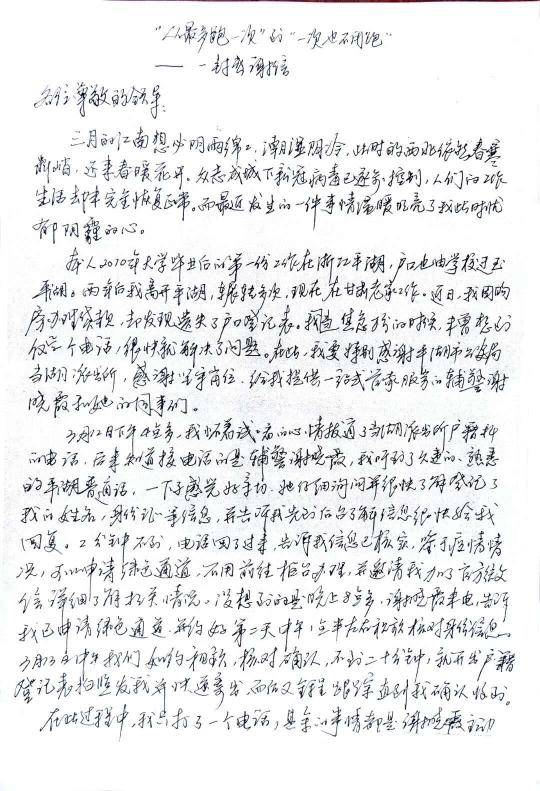 “从最多跑一次”到“一次也不用跑”
—— 一封感谢信
各位尊敬的领导:
三月的江南想必阴雨绵绵,潮湿阴冷,此时的西北依然春寒
料峭,还未春暖花开。众志成城下新冠病毒已逐步控制,人们的工作
生活却未完全恢复正常。而最近发生的一件事情温暖明亮了我此时忧
郁阴霾的心。
本人2010年大学毕业后的第一份工作在浙江平湖,户口也由学校迁至
平湖。两年后我离开平湖,辗转多次,现在在甘肃老家工作。近日,我因购
房办理贷款,却发现遗失了户口登记表。我
仅一个电话,很快就解决了问题。在此,我要特别感谢平湖市公安局
当湖派出所,感谢坚守岗位,给我提供一站式管家服务的辅警谢
晓霞和她的同事们。
3月12日下午4点多,我怀着试一试的心情拨通了当湖派出所户籍科
的电话,后来知道接电话的是辅警谢晓霞,我听到了久违的、熟悉
的平湖普通话,一下子感觉好亲切。她仔细询问并很快了解登记了
我的姓名、身份证等信息,并告诉我先到后台了解信息很快给我
回复。2分钟不到,电话回了过来,告诉我信息已核实,鉴于疫情情
况,可以申请绿色通道,不用前往柜台办理,并邀请我加了官方微
信详细了解相关情况。没想到的是晚上8点多,谢晓霞来电,告诉
我已申请绿色通道,并约好第二天中午1点半左右视频核对身份信息。
3月13日中午我们如约视频,核对确认,不到二十分钟,就开出户籍
登记表拍照发我并快递寄出,而后又全程跟踪直到我确认收到。
在此过程中,我只打了一个电话,其余的事情都是谢晓霞主动